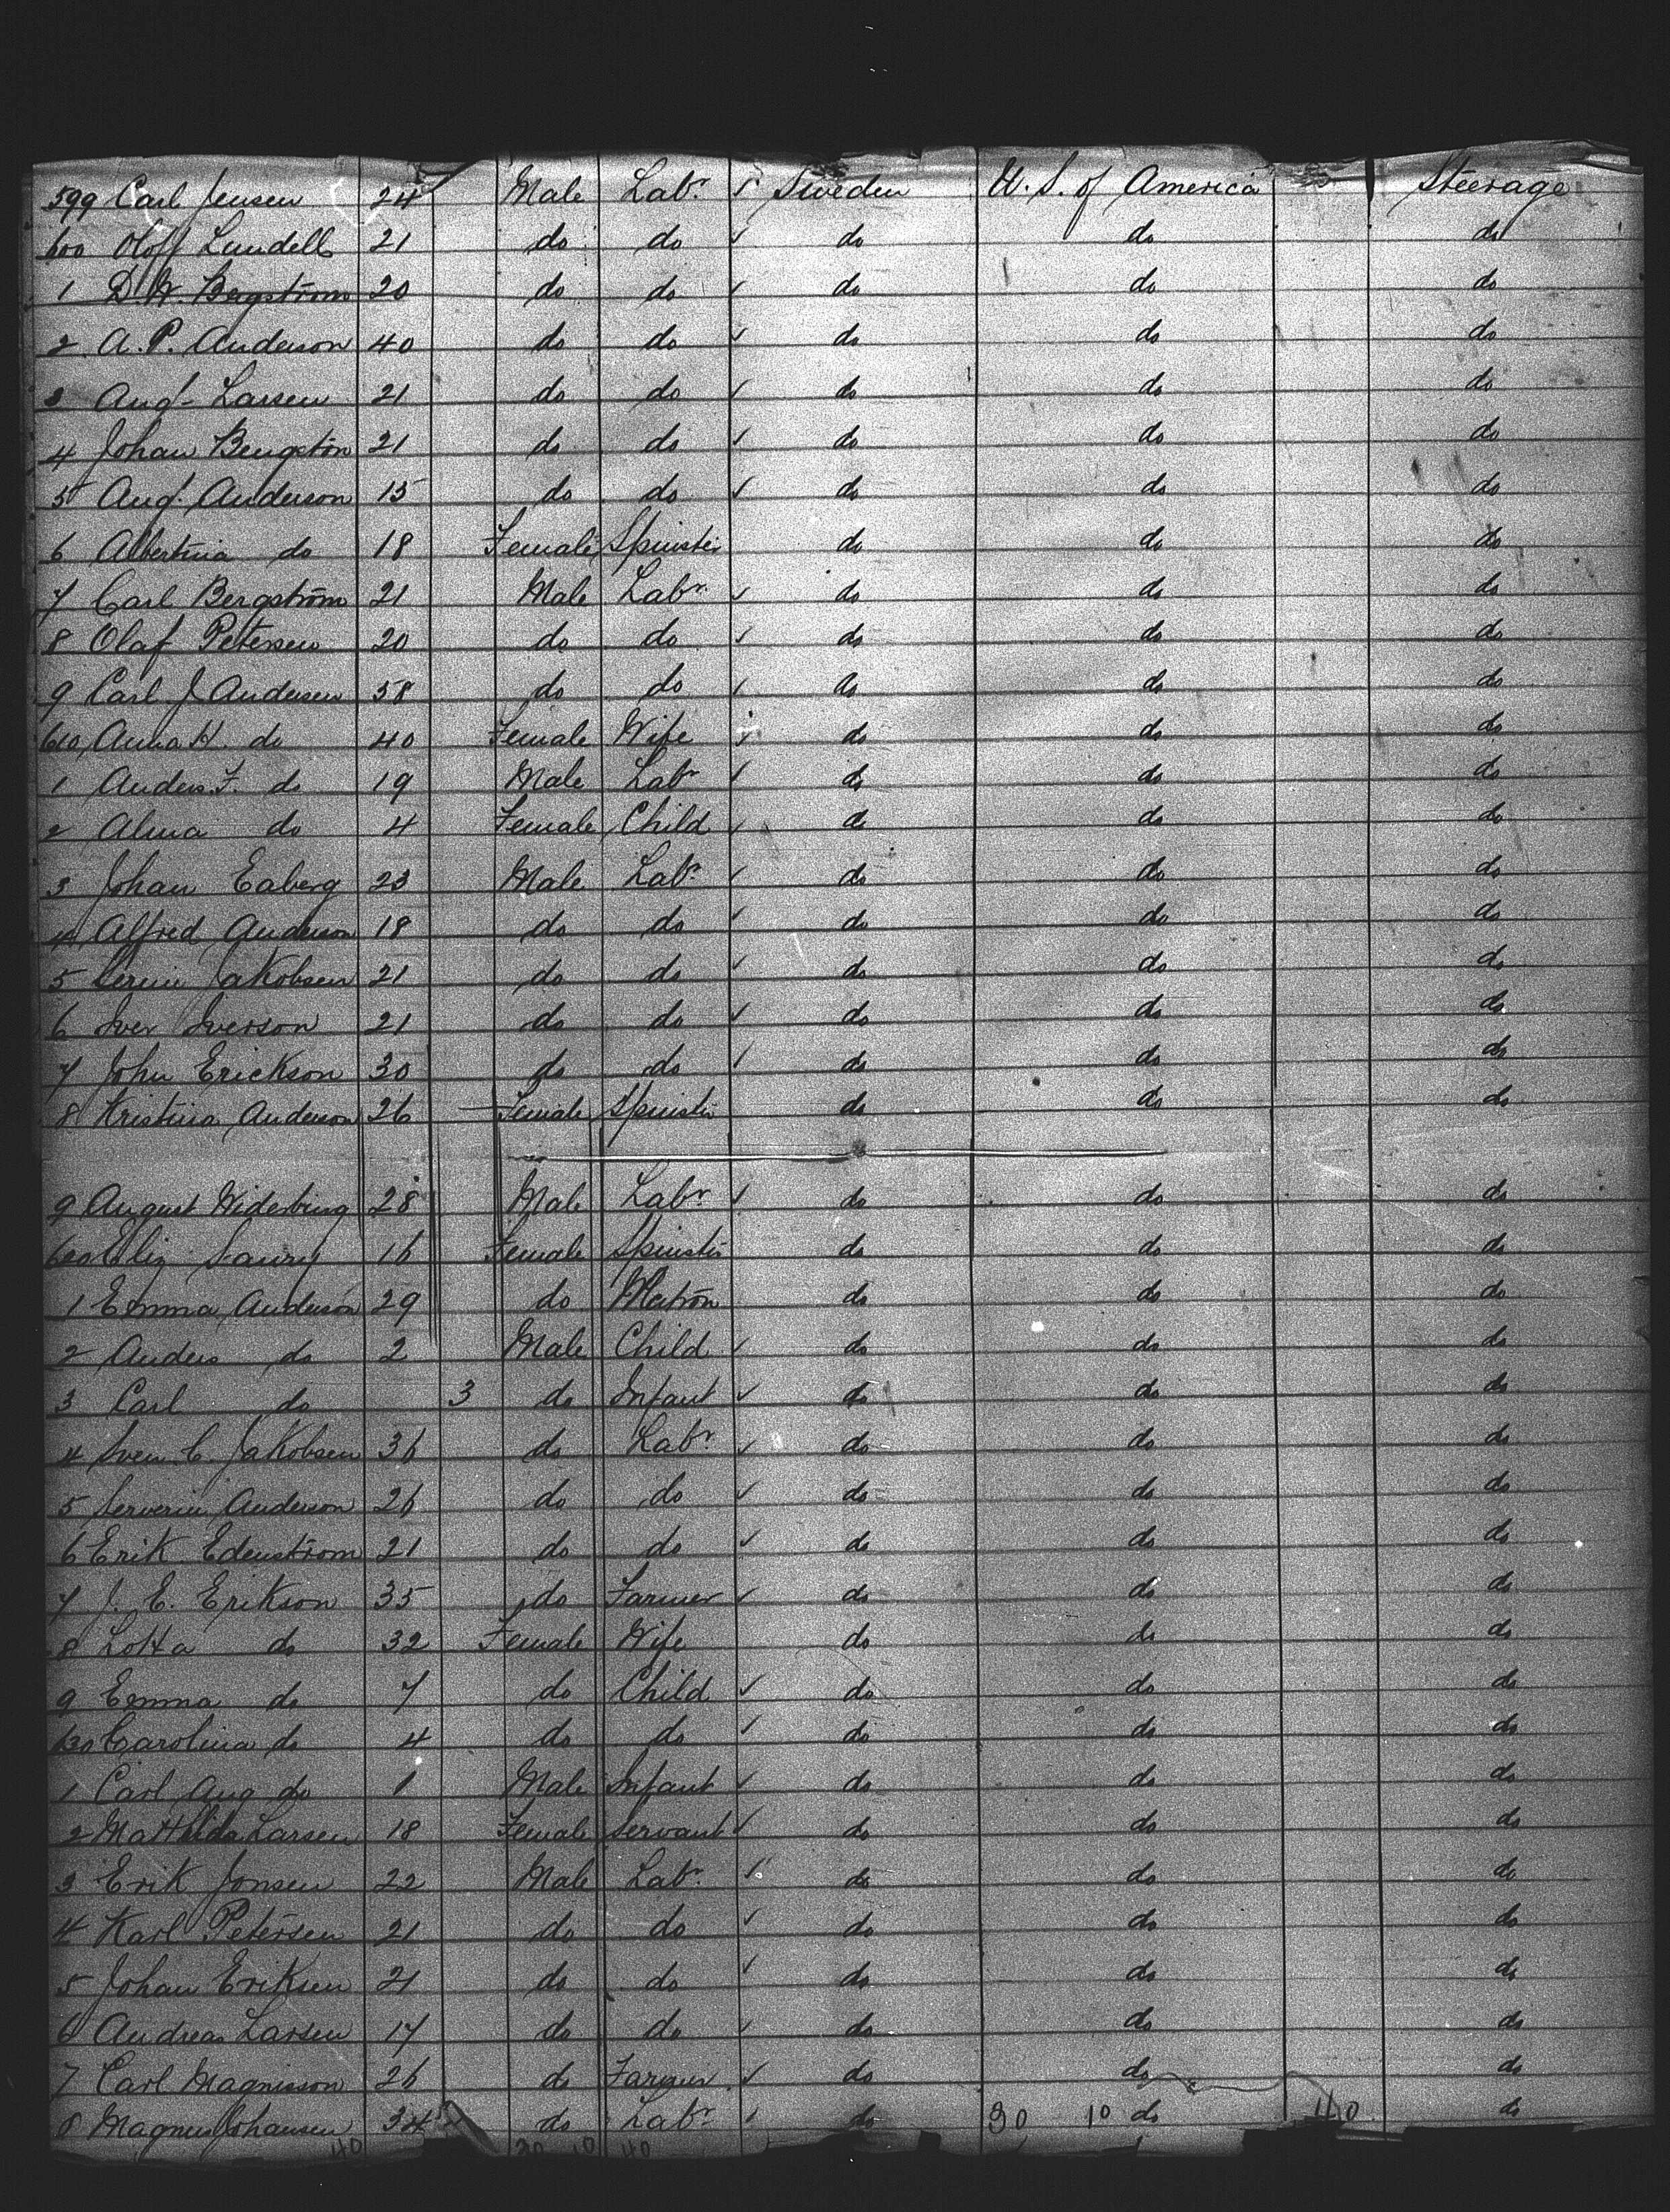 599 Carl Jensen 24 Male Labr. Sweden U.S. of America Steerage
600 Oloff Lundell 21 do do do do do
1 D W. Bergström 20 do do do do do
2 A. P. Anderson 40 do do do do do
3 Augt Larsen 21 do do do do do
4 Johan 21 do do do do do
5 Augt Anderson 15 do do do do do
6 Albertina do 18 Female Spinster do do do
7 Carl Bergström 21 Male Labr. do do do
8 Olaf Petersen 20 do do do do do
9 Carl J Andersen 58 do do do do do
610 Anna H. do 40 Female Wife do do do
1 Anders. F. do 19 Male Labr do do do
2 Alma do 4 Female Child do do do
3 Johan Eaberg 23 Male Labr do do do
4 Alfred Anderson 18 do do do do do
5 Jakobsen 21 do do do do do
6 Iver Iverson 21 do do do do do
7 John Erickson 30 do do do do do
8 Kristina Anderson 26 Female Spinster do do do
9 August 28 Male Labr. do do do
620 Eliz 16 Female Spinster do do do
1 Emma Anderson 29 do Matron do do do
2 Anders do 2 Male Child do do do
3 Carl do 3 do Infant do do do
4 Sven C. Jakobsen 36 do Labr. do do do
5 Serverin Anderson 26 do do do do do
6 Erik Edenstrom 21 do do do do do
7 J. E. Erikson 35 do Farmer do do do
8 Lotta do 32 Female Wife do do do
9 Emma do 7 do Child do do do
630 Carolina do 4 do do do do do
1 Carl Aug do 1 Male Infant do do do
2 Mathilda Larsen 18 Female Servant do do do
3 Erik Jonsen 22 Male Labr. do do do
4 Karl Petersen 21 do do do do do
5 Johan Eriksen 21 do do do do do
6 Andreas Larsen 17 do do do do do
7 Carl Magnisson 26 do Farmer do do do
8 Magnus Johansen 34 do Labr do 30 10 do 40 do
40 30 10 40